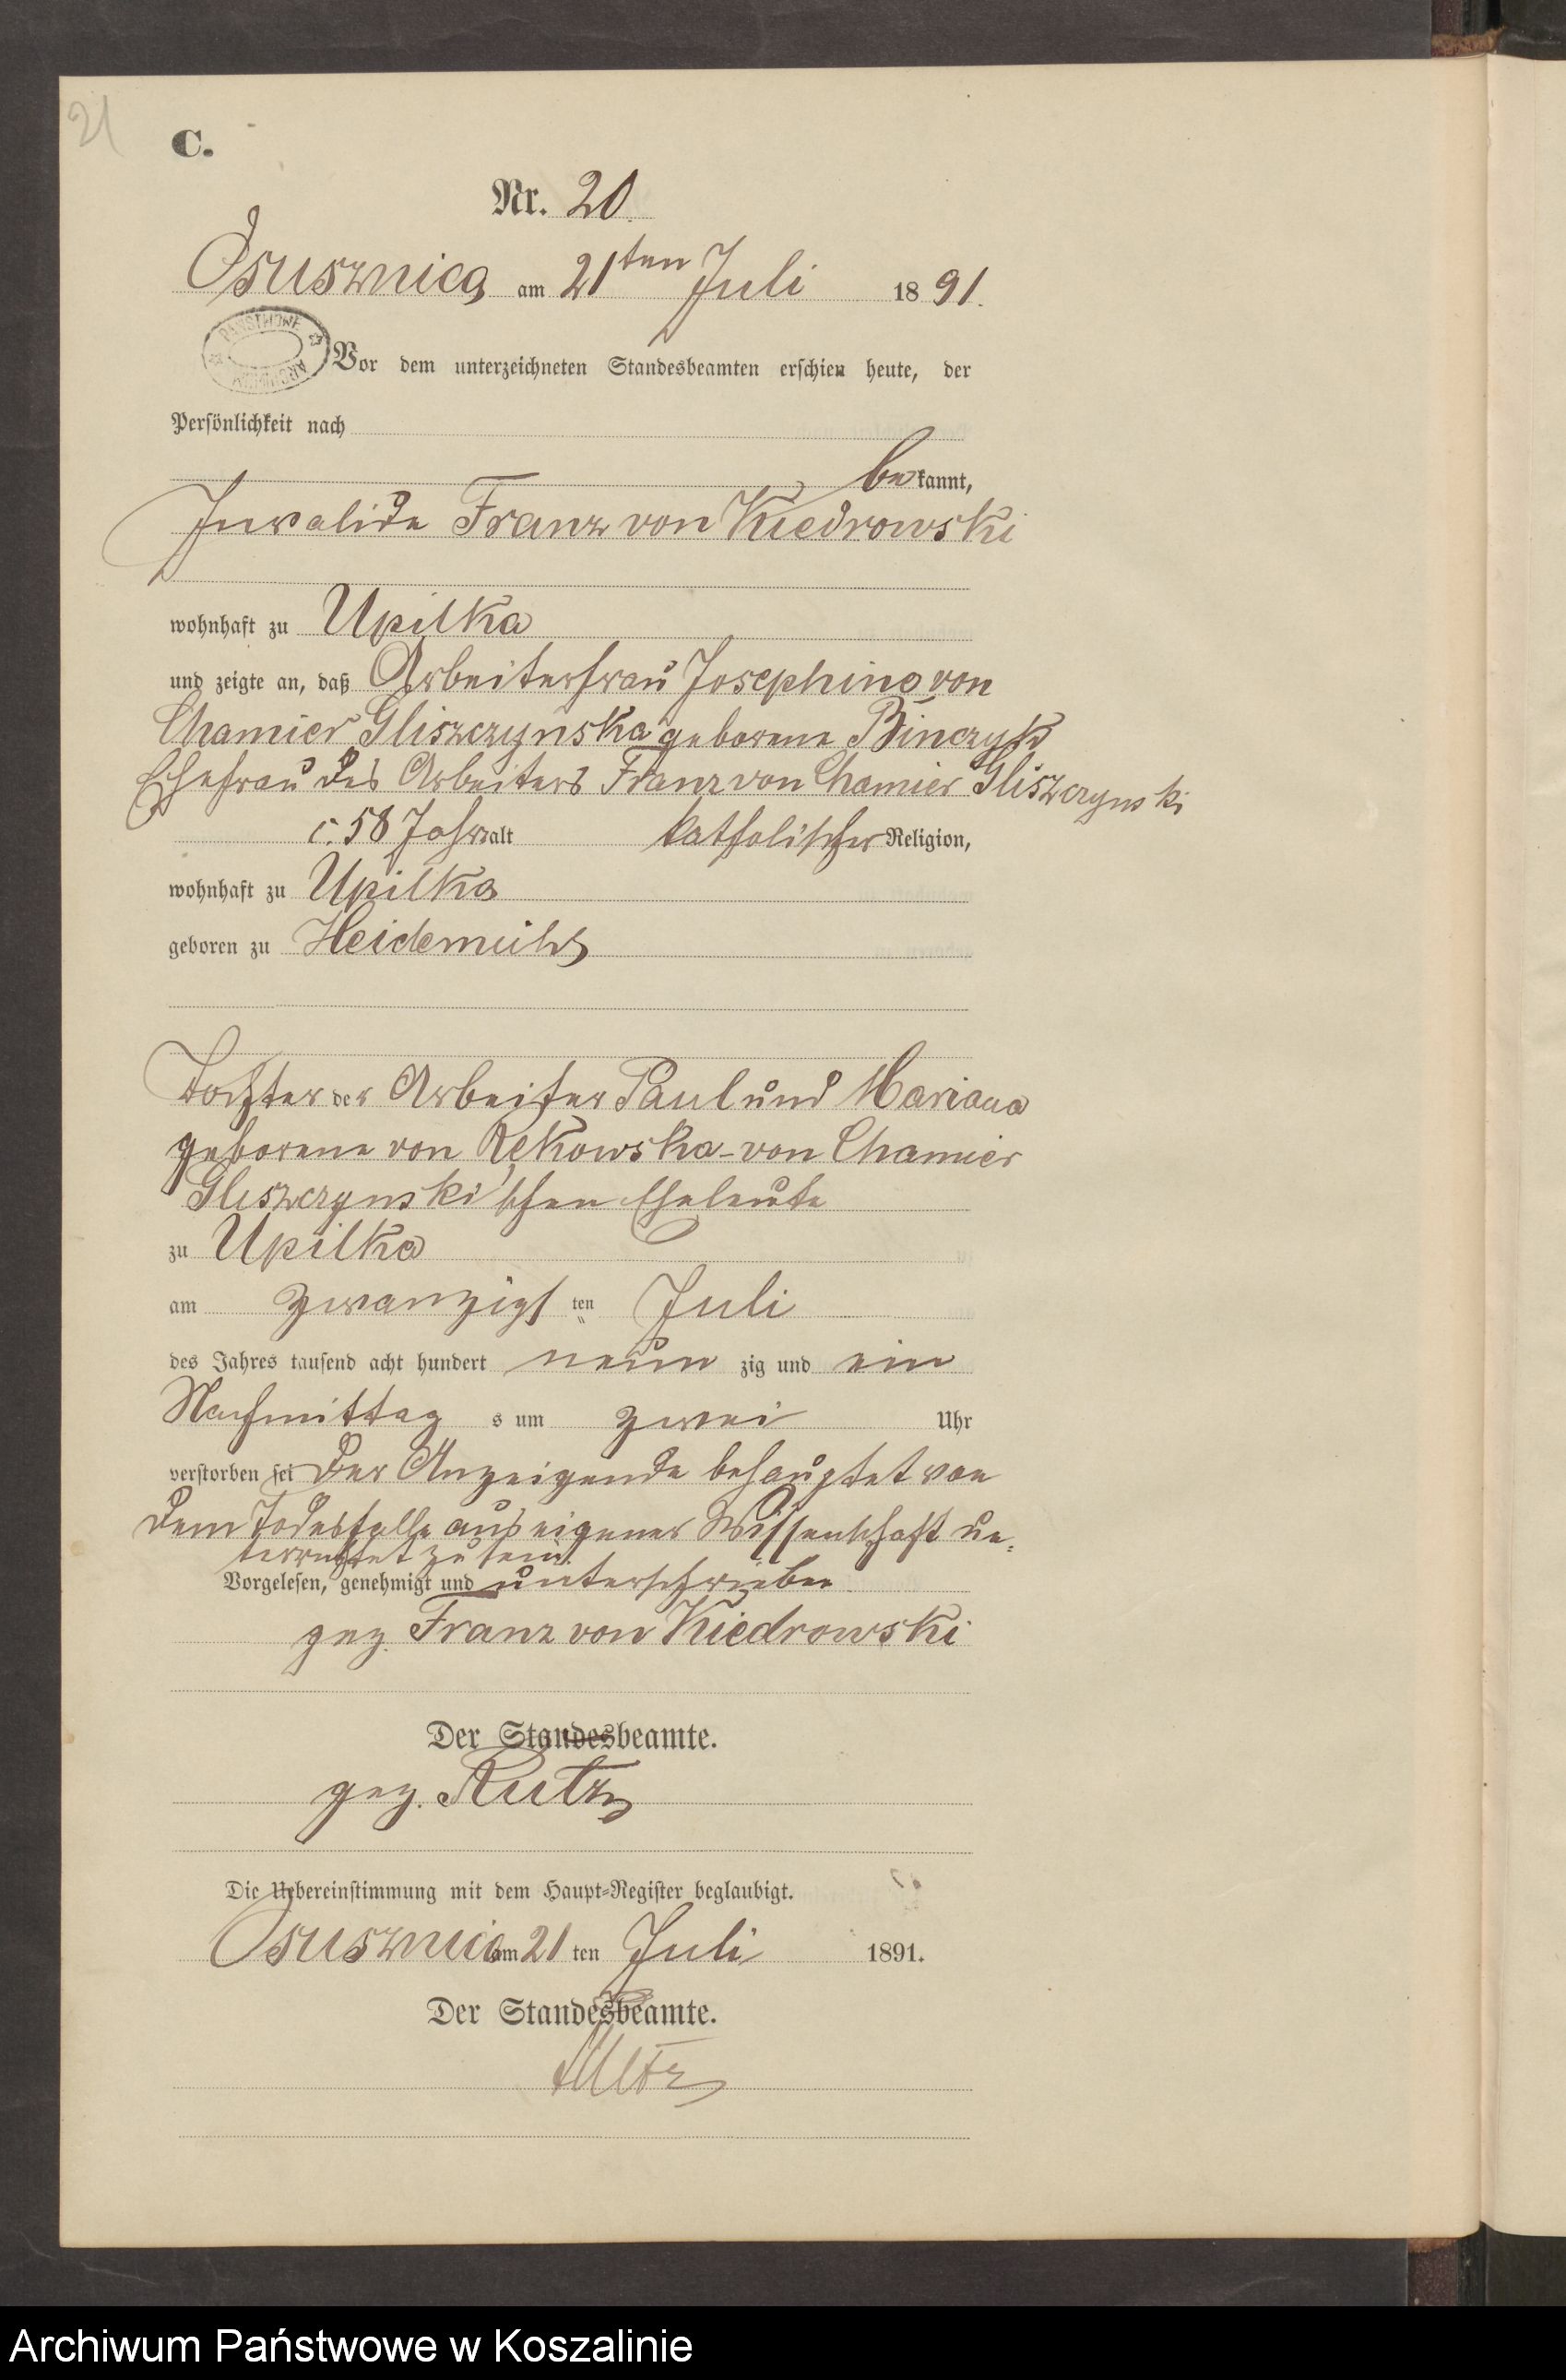 21
C.
Nr. 20.
Osusznica am 21ten Juli 1891.
PAŃSTWOWE ARCHIWUM
Vor dem unterzeichneten Standesbeamten erschien heute, der
Persönlichkeit nach
bekannt,
Invalide Franz von Kiedrowski
wohnhaft zu Upilka
und zeigte an, daß Arbeiterfrau Josephine von
Chamier Gliszczynska geborene Binczyk
Ehefrau des Arbeiters Franz von Chamier Gliszczynski
c. 58 Jahre alt katholischer Religion,
wohnhaft zu Upilka
geboren zu Heidemühl
Tochter der Arbeiter Paul und Mariana
geborene von Rekowska-von Chamier
Gliszczynski'schen Eheleute
zu Upilka
am zwanzigsten Juli
des Jahres tausend acht hundert neunzig und ein
Nachmittags um zwei Uhr
verstorben sei Der Anzeigende behauptet von
dem Todesfalle aus eigener Wissenschaft un-
terrichtet zu sein.
Vorgelesen, genehmigt und unterschrieben
gez. Franz von Kiedrowski
Der Standesbeamte.
gez. Rutz
Die Uebereinstimmung mit dem Haupt-Register beglaubigt.
Osusznica am 21ten Juli 1891.
Der Standesbeamte.
Rutz
Archiwum Państwowe w Koszalinie